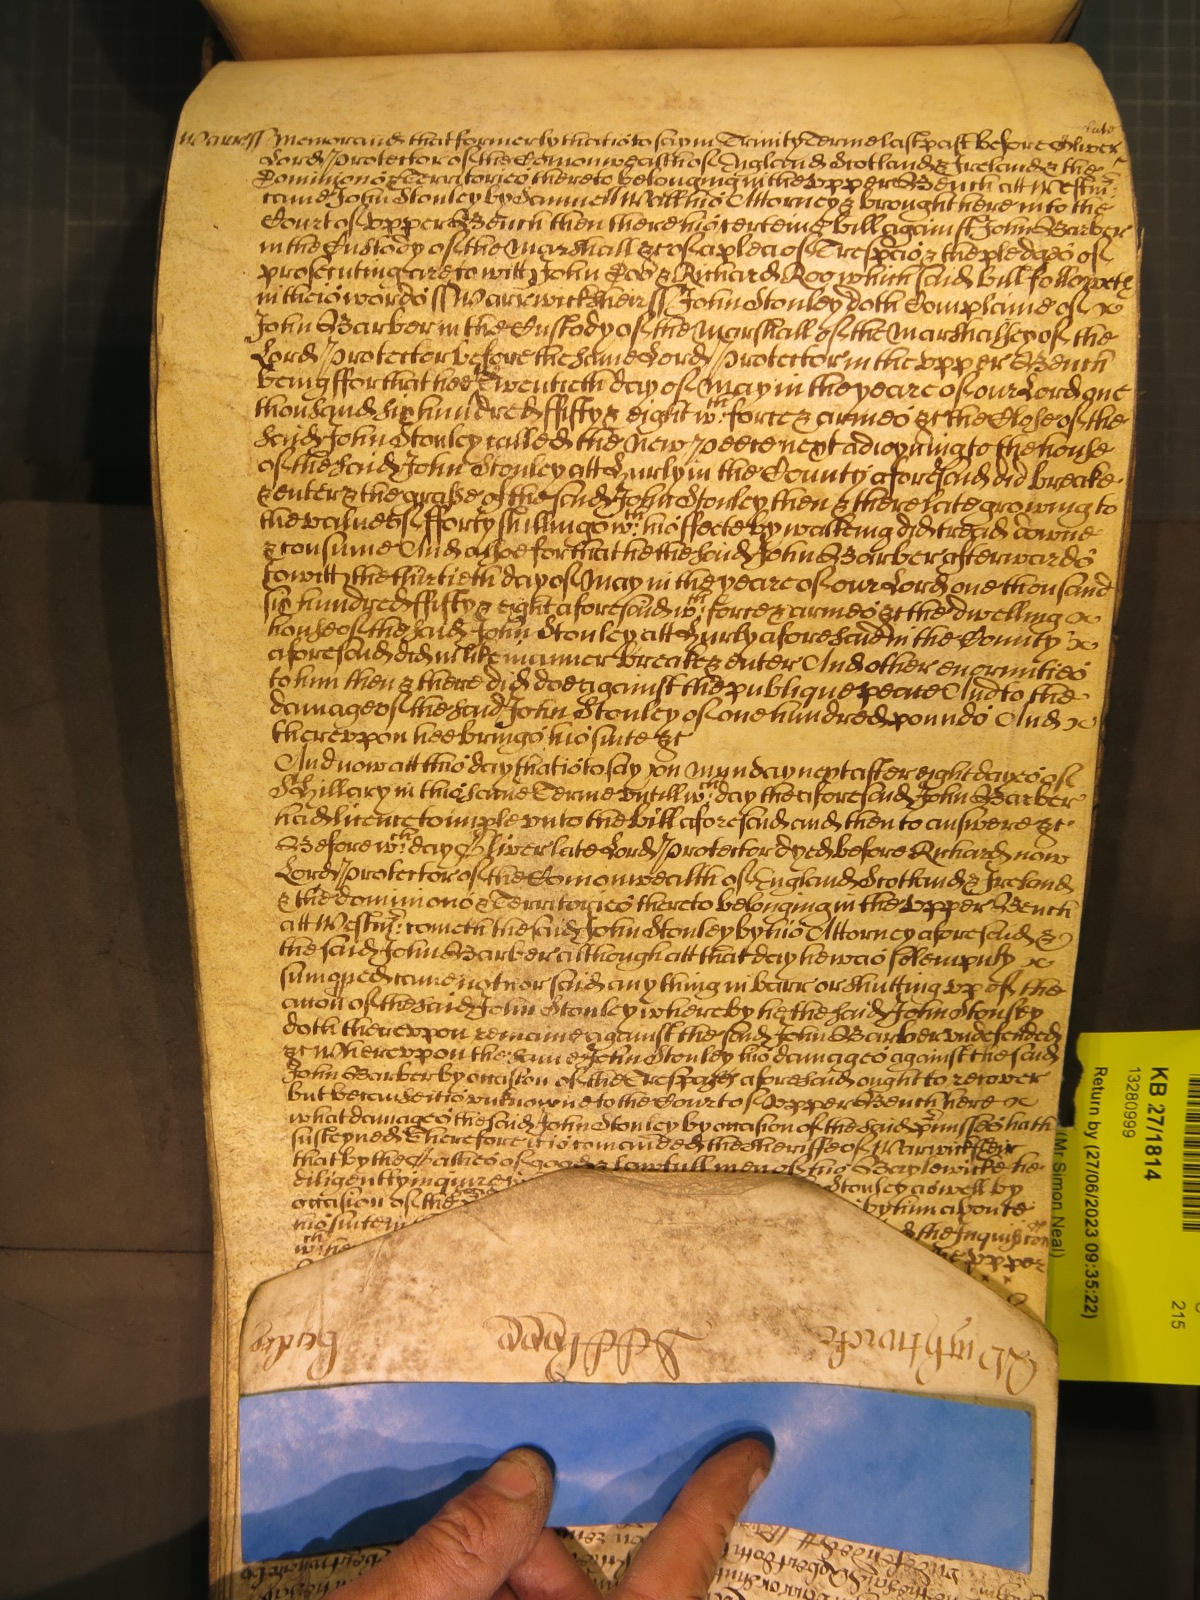 Warr ss Memorand that formerly that is to say in Trinity Terme last past before Oliver
Lord Protector of the Comonwealth of England Scotland & Ireland & the
Dominions & Territories thereto belonging in the Upper Bench att Westm:
came John Stonley by Samuell his Attorney & brought here into the
Court of Upper Bench then there his certeine bill against John Barber
in the Custody of the Marshall &c of a plea of Trespas & the pledges of
prosecuting are to witt John Doe & Richard Roo which said bill followeth
in theis words ss Warrwicksheir ss John Stonley doth Complaine of
John Barber in the Custody of the Marshall of the Marshalsey of the
Lord Protector before the same Lord Protector in the Upper Bench
being ffor that hee Twentieth day of May in the yeare of our Lord one
thousand six hundred ffifty & eight wth force & armes &c the Close of the
said John Stonley called the New Peece next adioyning to the house
of the said John Stonley att Surly in the County aforesaid did breake
& enter & the grasse of the said John Stonley then & there late growing to
the value of fforty shillings wth his ffeete by walking did tread downe
& consume And alsoe for that he the said John Barber afterwards
to witt the thirtieth day of May in the yeare of our Lord one thousand
six hundred ffifty & eight aforesaid wth force & armes &c the dwelling
house of the said John Stonley att Surly aforesaid in the County
aforesaid did in like manner breake & enter And other enormities
to him then & there did doe against the publique peace And to the
damage of the said John Stonley of one hundred pounds And
thereuppon hee brings his suite &c
And now att this day that is to say on Munday next after eight dayes of
St Hillary in this same Terme untill wch day the aforesaid John Barber
had licence to imple unto the bill aforesaid and then to answere &c
Before wch day Oliver late Lord Protector dyed before Richard now
Lord Protector of the Comonwealth of England Scotland & Ireland
& the dominions & Territories thereto belonging in the Upper Bench
att Westm: cometh the said John Stonley by his Attorney aforesaid &
the said John Barber although att that day he was solempnly
sumoned came not nor said any thing in barr or shutting up of the
accon of the said John Stonley whereby he the said John Stonley
doth thereuppon remaine against the said John Barber undefended
&c Whereuppon the same John Stonley his damages against the said
John Barber by occasion of the Trespasses aforesaid ought to recover
but because it is unknowne to the Court of Upper Bench here
what damages the said John Stonley by occasion of the said p'misses hath
susteyned Therefore it is comanded the Sheriffe of Warwicksheir
that by the Oathes of good & lawfull men of his Baylewicke he
diligently inquire Stonley aswell by
occasion of the by him about
his suite in the Inquisicon
wch he the Upper
KB 27/1814
13280999
Return by (27/06/2023 09:35:22)
(Mr Simon Neal)
215